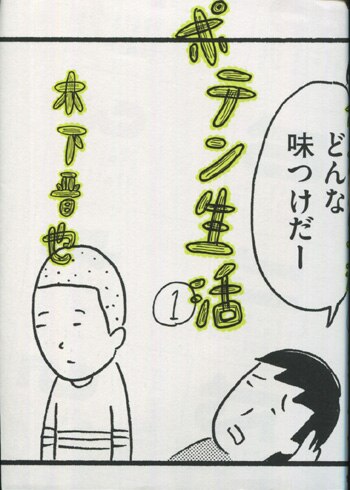 ポテン生活
①
木下晋也
どんな
味つけだー